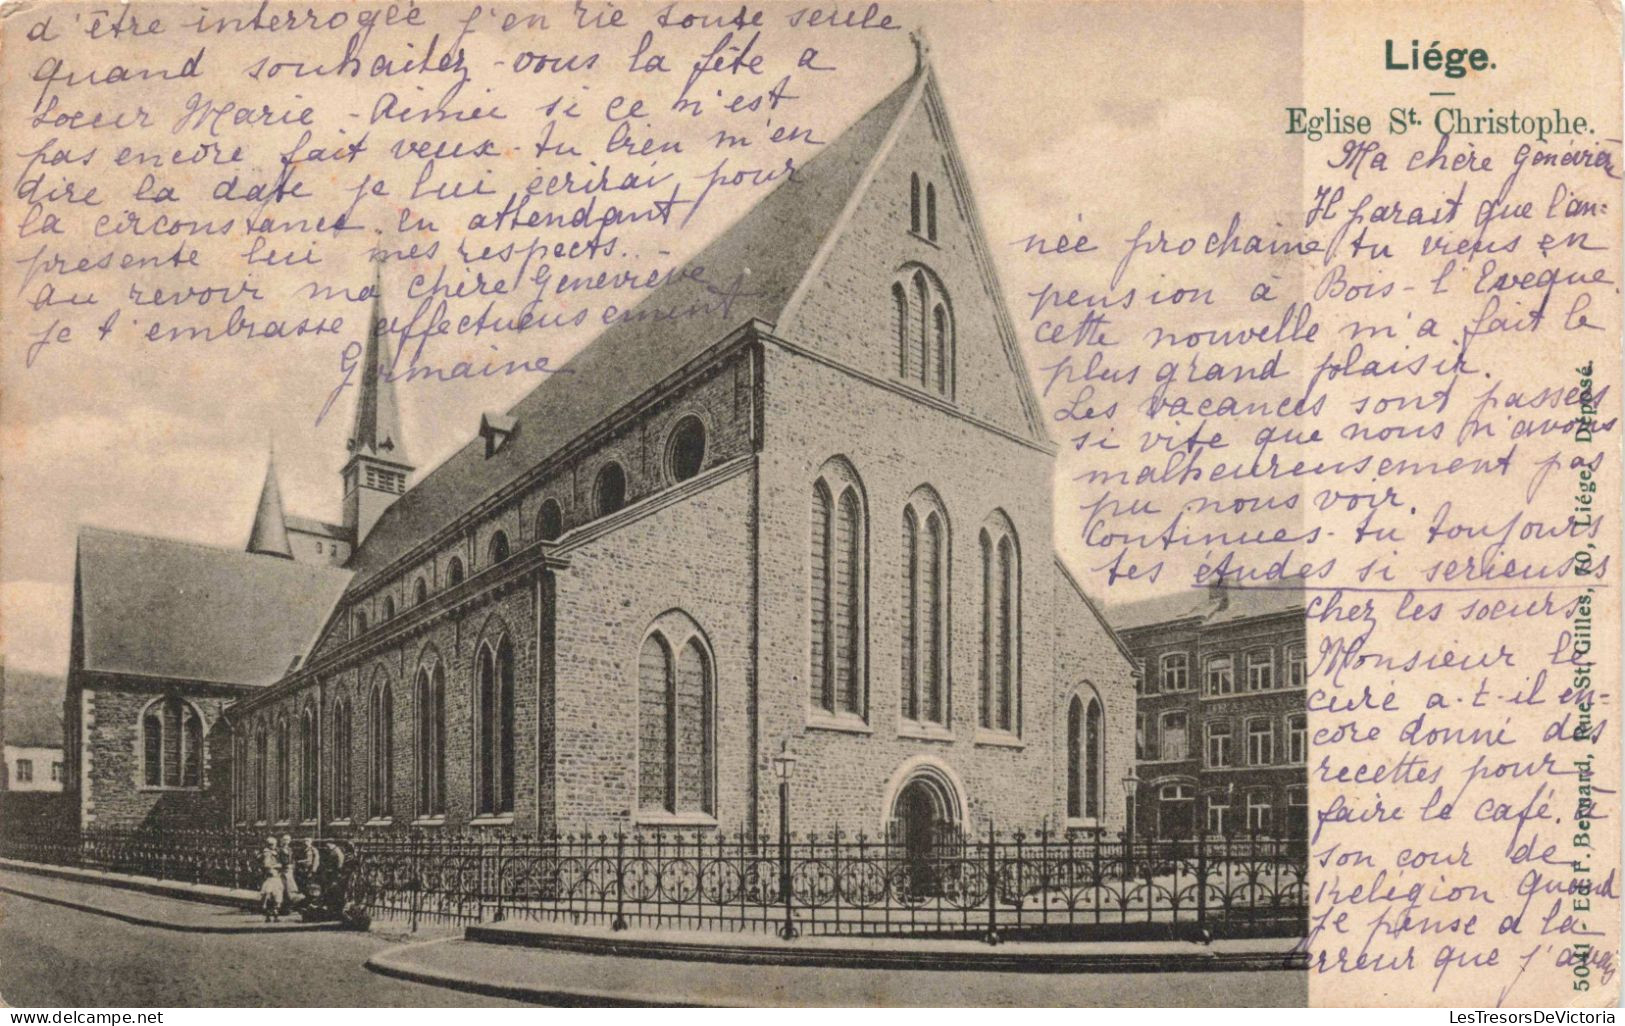 Liége.
Eglise St. Christophe.
Ma chère Geneviève
Il parait que l'an-
née prochaine tu viens en
pension à Bois-l'Evêque.
cette nouvelle m'a fait le
plus grand plaisir.
Les vacances sont passées
si vite que nous n'avons
malheureusement pas
pu nous voir.
Continues-tu toujours
tes études si serieuses
chez les soeurs
Monsieur le
curé a-t-il en-
core donné des
recettes pour
faire le café. à
son cour de
Religion Quand
Je pense a la
terreur que j'avais
d'être interrogée j'en rie toute seule
quand souhaitez-vous la fête a
Soeur Marie-Aimée si ce n'est
pas encore fait veux-tu bien m'en
dire la date je lui écrirai pour
la circonstance. en attendant
presente lui mes respects..
au revoir ma chère Geneviève
je t'embrasse affectueusement
Germaine
5041 - Ed. F. Bernard, Rue St. Gilles, 70, Liége. Déposé.
LesTresorsDeVictoria